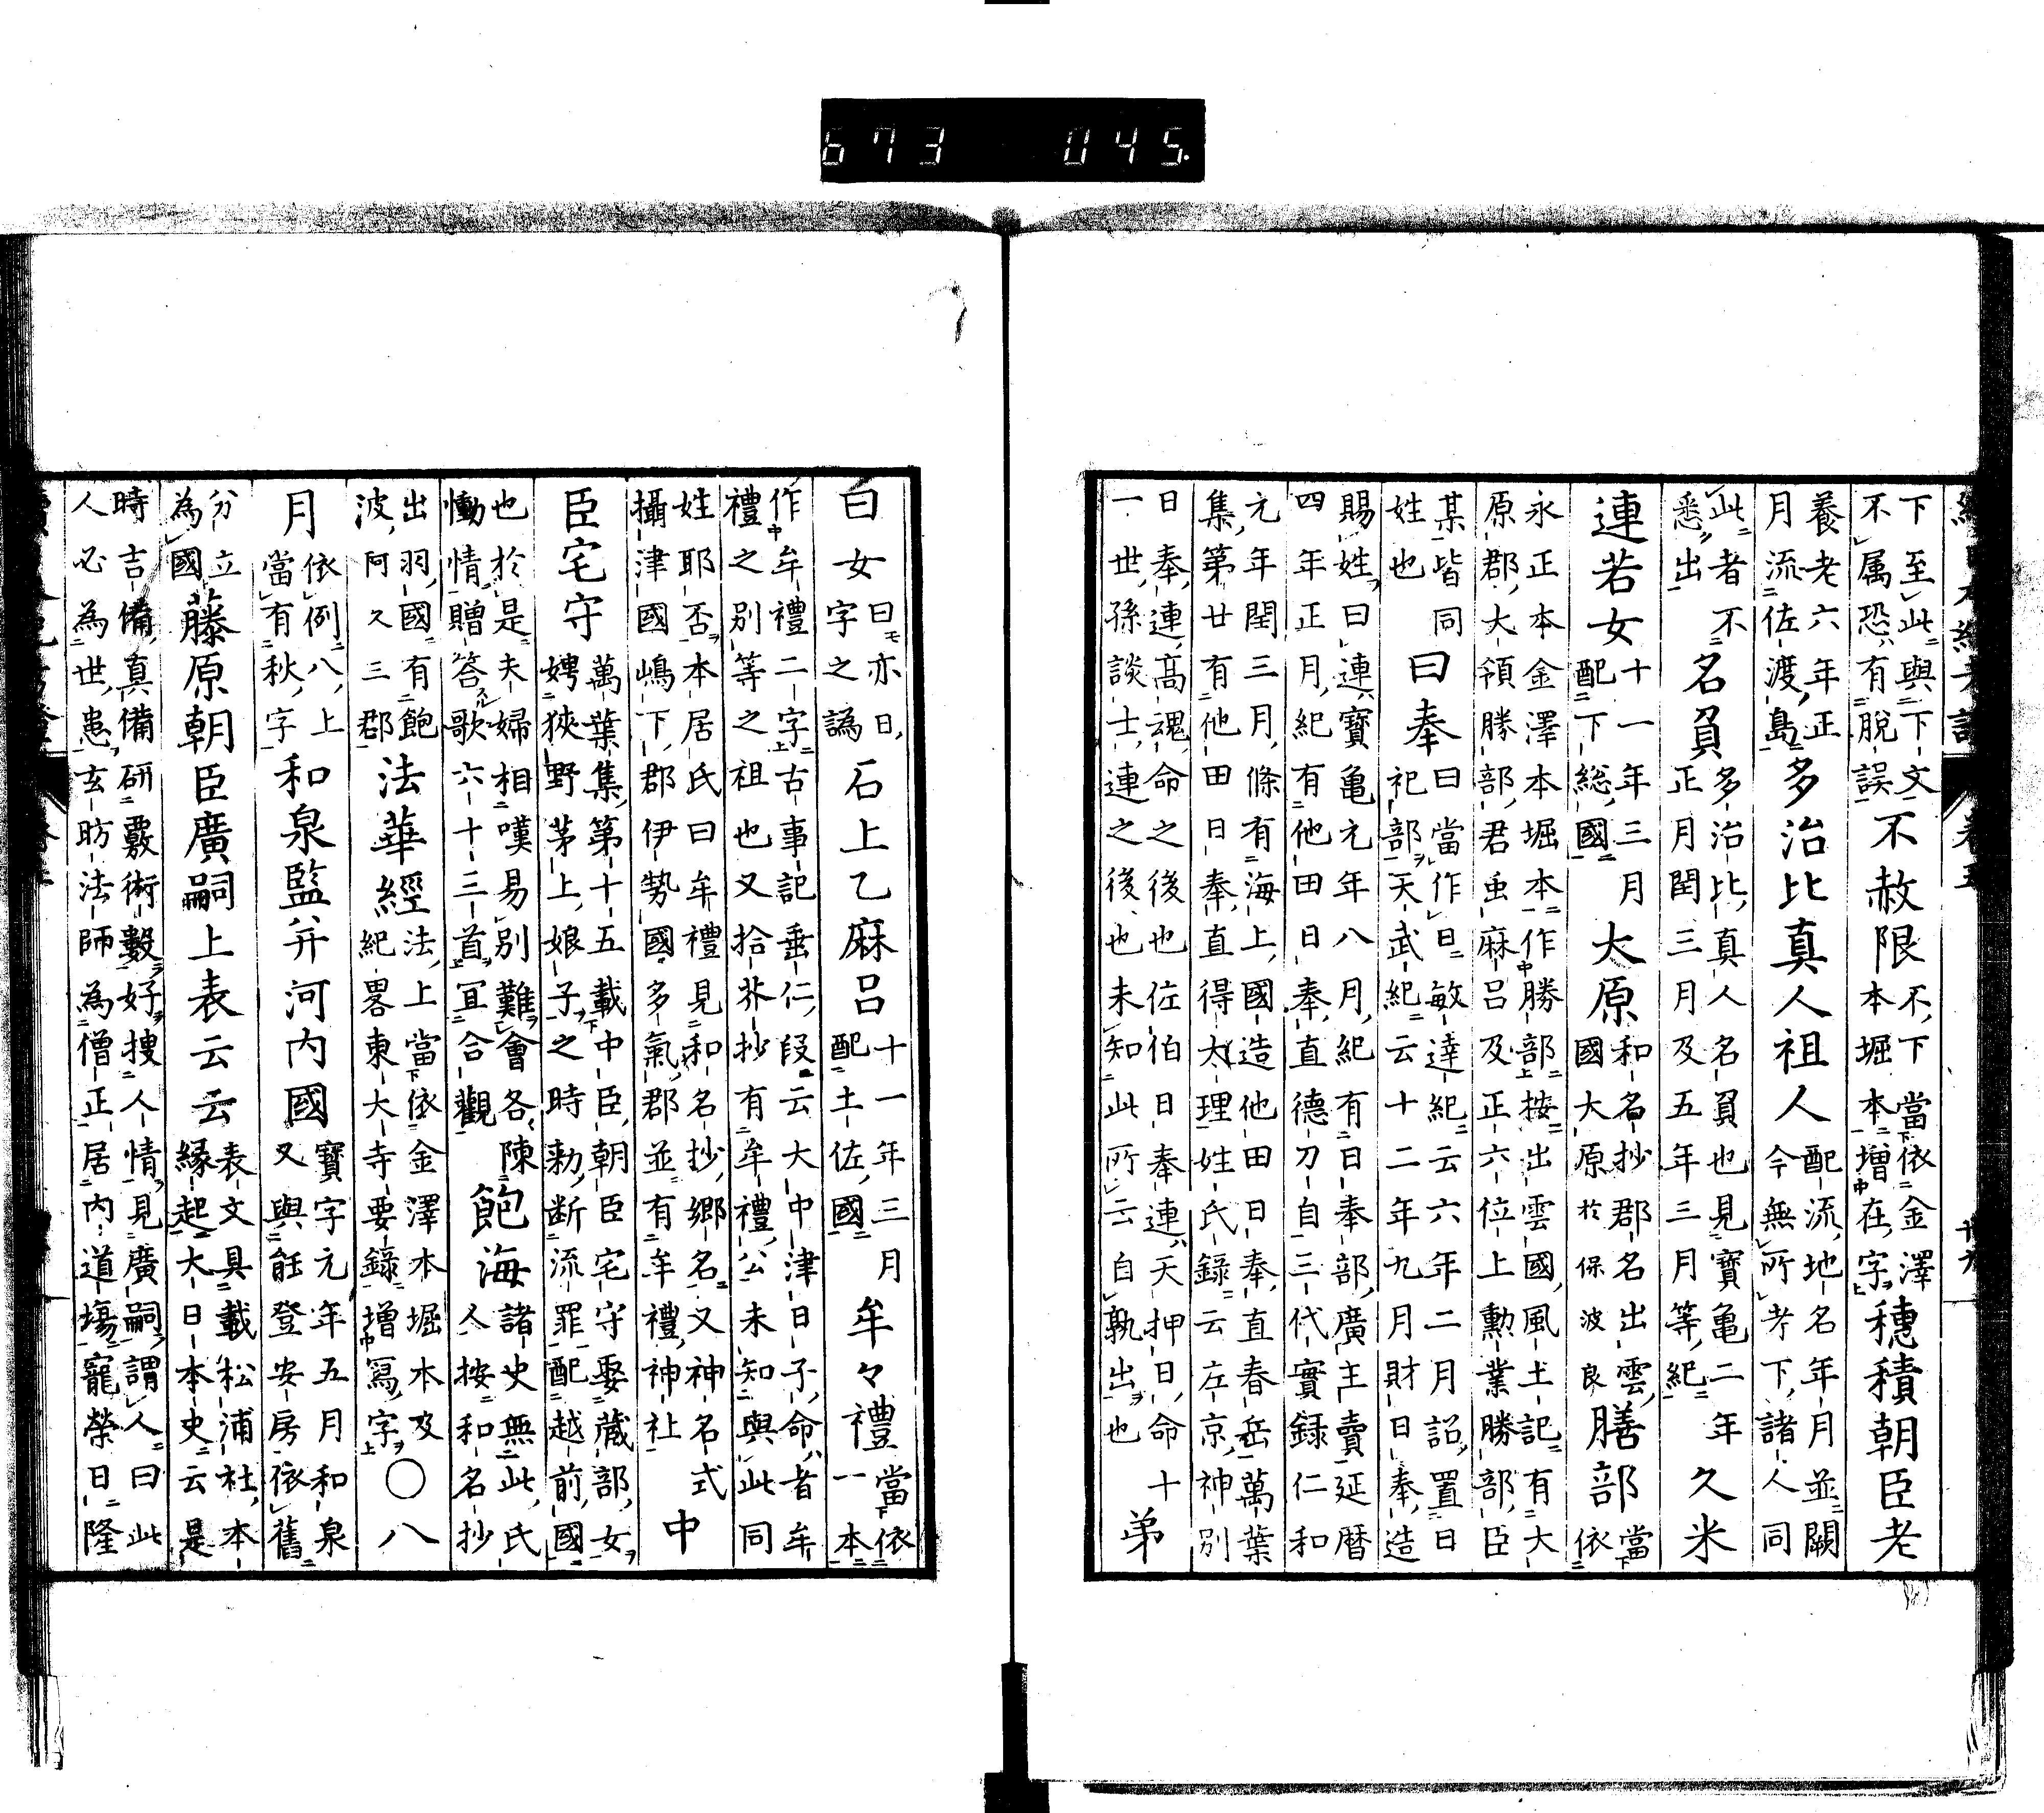 673 045.
下至此與下文
不属恐有脱誤
不赦限
不下當依金澤
本堀本増在字
穂積朝臣老
養老六年正
月流佐渡島
多治比真人祖人
配流地名年月並闕
今無所考下諸人同
此者不
悉出
名負
多治比真人名負也見寶亀二年
正月閏三月及五年三月等紀
久米
連若女
十一年三月
配下総國
大原
和名抄郡名出雲
國大原於保波良
膳部
當
依
永正本金澤本堀本作勝部按出雲國風土記有大
原郡大領勝部君虫麻呂及正六位上勲業勝部臣
某皆同
姓也
曰奉
曰當作日敏達紀云六年二月詔置日
祀部天武紀云十二年九月財日奉造
賜姓曰連寶亀元年八月紀有日奉部廣主賣延暦
四年正月紀有他田日奉直德刀自三代實録仁和
元年閏三月條有海上國造他田日奉直春岳萬葉
集第廿有他田日奉直得太理姓氏録云左京神別
日奉連高魂命之後也佐伯日奉連天押日命十
一世孫談士連之後也未知此所云自孰出也
弟
日女
日亦曰
字之譌
石上乙麻呂
十一年三月
配土佐國
牟々禮
當依
一本
作牟禮二字古事記垂仁段云大中津日子命者牟
禮之別等之祖也又拾芥抄有牟禮公未知與此同
姓耶否本居氏曰牟禮見和名抄郷名又神名式
攝津國嶋下郡伊勢國多氣郡並有牟禮神社
中
臣宅守
萬葉集第十五載中臣朝臣宅守娶蔵部女
娉狹野茅上娘子之時勅断流罪配越前國
也於是夫婦相嘆易別難會各陳
慟情贈答歌六十三首宜合觀
飽海
諸史無此氏
人按和名抄
出羽國有飽
波阿久三郡
法華經
法上當依金澤本堀本及
紀畧東大寺要録増寫字
〇八
月
依例八上
當有秋字
和泉監并河内國
寶字元年五月和泉
又與能登安房依舊
分立
為國
藤原朝臣廣嗣上表云云
表文具載松浦社本
縁起大日本史云是
時吉備真備研覈術數好捜人情見廣嗣謂人曰此
人必為世患玄昉法師為僧正居内道場寵榮日隆